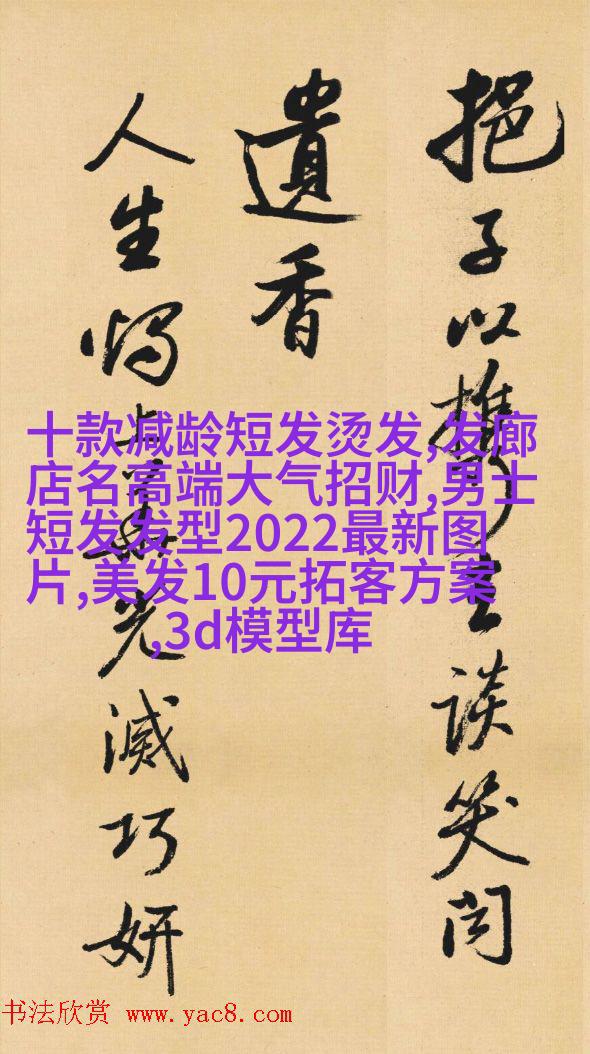 挹子以攜談笑間
遺香
人生光滅巧妍
十款减龄短发烫发,发廊
店名高端大气招财,男士
短发发型2022最新图
片,美发10元拓客方案
,3d模型库
书法欣赏 www.yac8.com